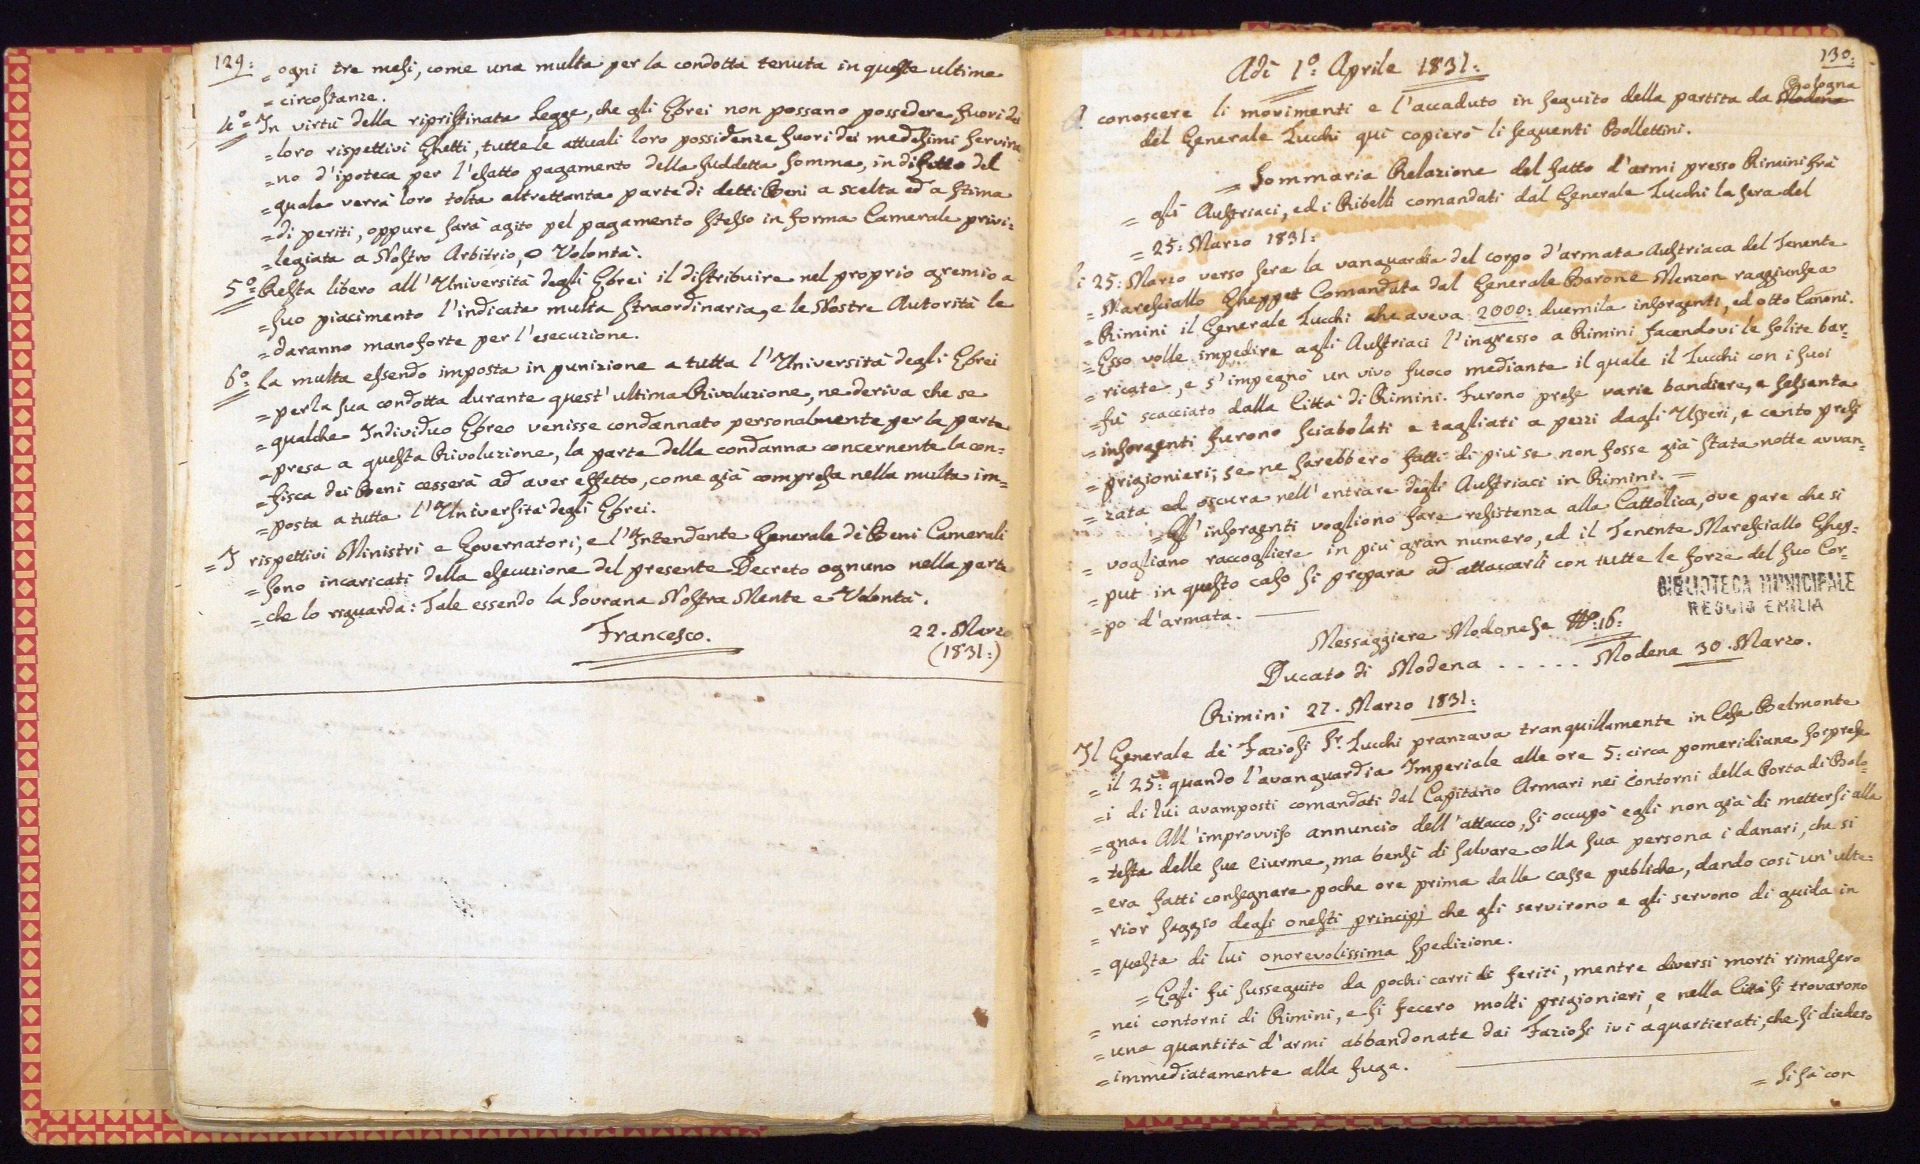 129:
= ogni tre mesi, come una multa per la condotta tenuta in queste ultime
= circostanze.
4.° = In virtù della ripristinata Legge, che gli Ebrei non possano possedere fuori dei
= loro rispettivi Ghetti, tutte le attuali loro possidenze fuori dei medesimi serviran-
= no d'ipoteca per l'esatto pagamento della suddetta somma, in difetto del
= quale verrà loro tolta altrettanta parte di detti Beni a scelta ed a stima
= di periti, oppure sarà agito pel pagamento stesso in forma Camerale privi:
= legiata a Nostro Arbitrio, o Volontà.
5.° = Resta libero all'Università degli Ebrei il distribuire nel proprio gremio a
= suo piacimento l'indicata multa straordinaria, e le Nostre Autorità le
= daranno manoforte per l'esecuzione.
6.° = La multa essendo imposta in punizione a tutta l'Università degli Ebrei
= per la sua condotta durante quest'ultima Rivoluzione, ne deriva che se
= qualche Individuo Ebreo venisse condannato personalmente per la parte
= presa a questa Rivoluzione, la parte della condanna concernente la con=
= fisca dei Beni cesserà ad aver effetto, come già compresa nella multa im=
= posta a tutta l'Università degli Ebrei.
= I rispettivi Ministri e Governatori, e l'Intendente Generale di Beni Camerali
= sono incaricati della esecuzione del presente Decreto ognuno nella parte
= che lo riguarda: Tale essendo la Sovrana Nostra Mente e Volontà.
Francesco.
22. Marzo
(1831:)
130:
Adì 1.° Aprile 1831:
A conoscere li movimenti e l'accaduto in seguito della partita da Modena Bologna
del Generale Zucchi qui copierò li seguenti Bollettini.
= Sommaria Relazione del fatto d'armi presso Rimini frà
= gli Austriaci, ed i Ribelli comandati dal Generale Zucchi la sera del
= 25: Marzo 1831:
Li 25: Marzo verso sera la vanguardia del corpo d'armata Austriaca del Tenente
= Maresciallo Gheppert Comandata dal Generale Barone Menzon raggiunse a
= Rimini il Generale Zucchi che aveva 2000: duemila insorgenti, ed otto Canoni.
= Esso volle impedire agli Austriaci l'ingresso a Rimini facendovi le solite bar-
= ricate, e s'impegnò un vivo fuoco mediante il quale il Zucchi con i suoi
= fu scacciato dalla Città di Rimini. Furono prese varie bandiere, e sessanta
= insorgenti furono sciabolati e tagliati a pezzi dagli Usseri, e cento presi
= prigionieri; se ne sarebbero fatti di più se non fosse già stata notte avvan-
= zata ed oscura nell'entrare degli Austriaci in Rimini. =
= Gl'insorgenti vogliono fare resistenza alla Cattolica, ove pare che si
= vogliano raccogliere in più gran numero, ed il Tenente Maresciallo Ghep-
= put in questo caso si prepara ad attaccarli con tutte le forze del suo Cor-
= po d'armata.
BIBLIOTECA MUNICIPALE
REGGIO EMILIA
Messaggiere Modonese N.°: 16:
Ducato di Modena . . . . . Modena 30. Marzo.
Rimini 27. Marzo 1831:
Il Generale de' Faziosi S.r Zucchi pranzava tranquillamente in Casa Belmonte
= il 25: quando l'avanguardia Imperiale alle ore 5: circa pomeridiane sorprese
= i di lui avamposti comandati dal Capitano Armari nei contorni della Porta di Bolo-
= gna. All'improvviso annuncio dell'attacco, si occupò egli non già di mettersi alla
= testa delle sue Ciurme, ma bensì di salvare colla sua persona i danari, che si
= era fatti consegnare poche ore prima dalle casse publiche, dando così un'ulte=
= rior saggio degli onesti principj che gli servirono e gli servono di guida in
= questa di lui onorevolissima spedizione.
= Egli fu susseguito da pochi carri di feriti, mentre diversi morti rimasero
= nei contorni di Rimini, e si fecero molti prigionieri, e nella Città si trovarono
= una quantità d'armi abbandonate dai Faziosi ivi aquartierati, che si diedero
= immediatamente alla fuga.
= Si fà con